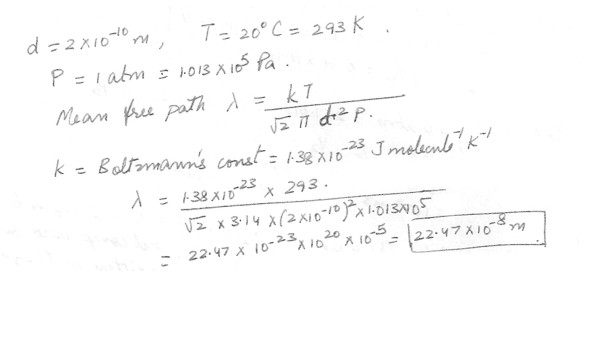 d = 2 × 10⁻¹⁰ m, T = 20°C = 293 K.
P = 1 atm = 1.013 × 10⁵ Pa.
Mean free path λ = kT / √2 π d² P.
k = Boltzmann's const = 1.38 × 10⁻²³ J molecule⁻¹ K⁻¹
λ = 1.38 × 10⁻²³ × 293. / √2 × 3.14 × (2 × 10⁻¹⁰)² × 1.013 × 10⁵
= 22.47 × 10⁻²³ × 10²⁰ × 10⁻⁵ = 22.47 × 10⁻⁸ m.